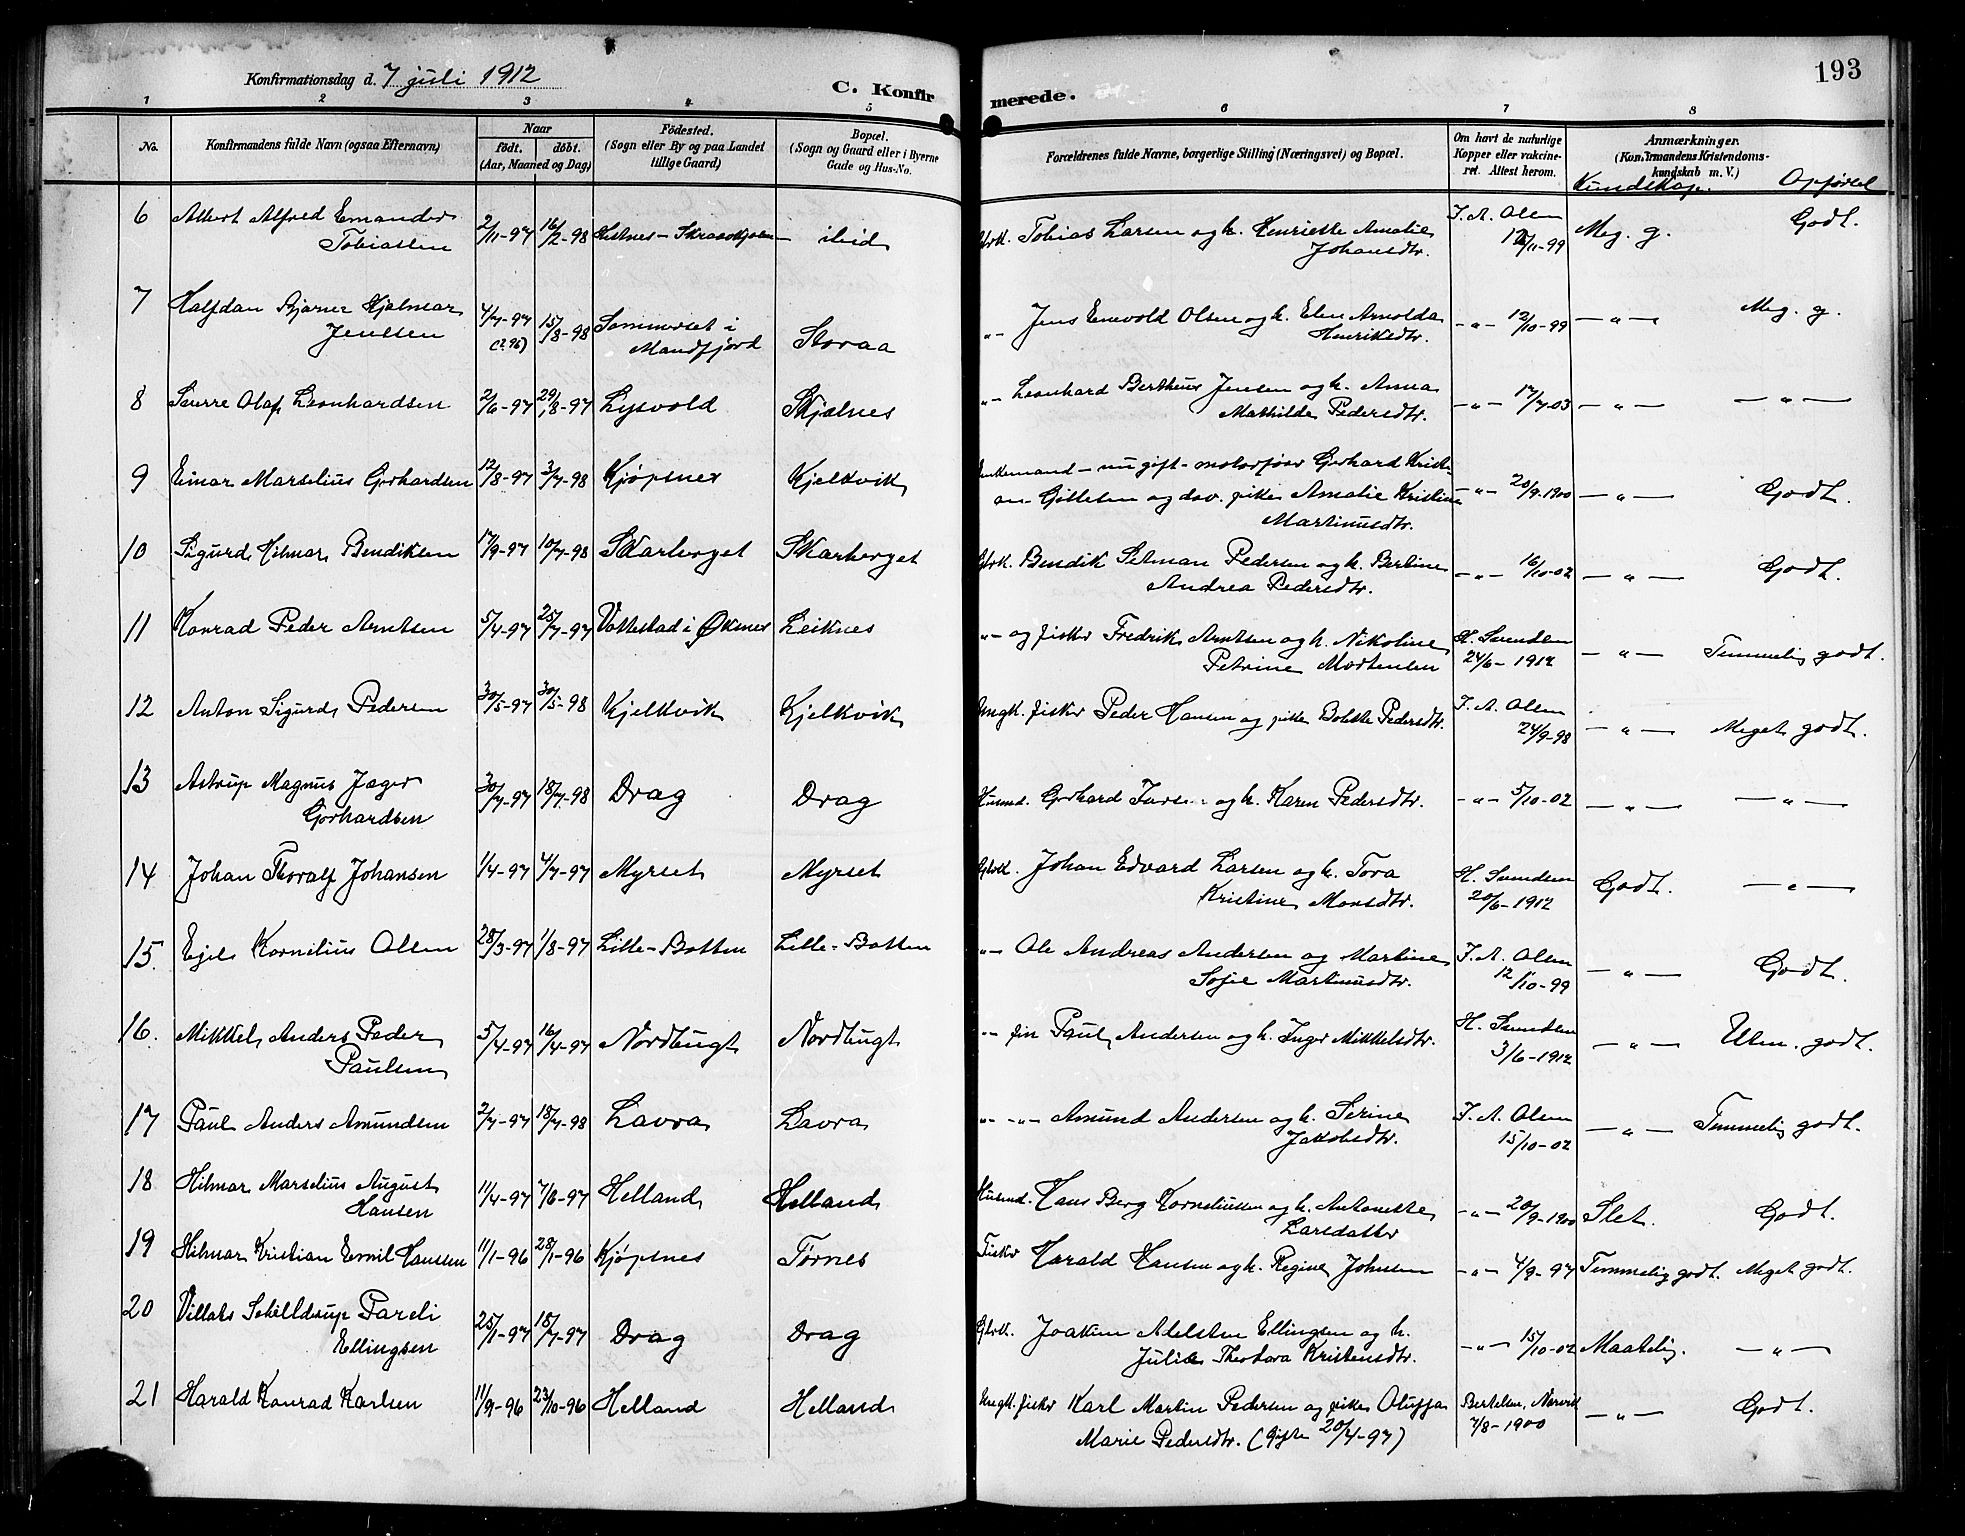 193
Konfirmationsdag d. 7 juli 1912
C. Konfirmerede.
1 2 3 4 5 6 7 8
No.
Konfirmandens fulde Navn (ogsaa Efternavn)
Naar
født. døbt.
(Aar, Maaned og Dag)
Fødested.
(Sogn eller By og paa Landet
tillige Gaard)
Bopæl.
(Sogn og Gaard eller i Byerne
Gade og Hus-No.
Forældrenes fulde Navne, borgerlige Stilling (Næringsvei) og Bopæl.
Om havt de naturlige
Kopper eller vakcine-
ret. Attest herom.
Anmærkninger.
(Konfirmandens Kristendoms-
kundskab m. V.)
Kundskap. Opførsel
6 Albert Alfred Emander 2/11-97 16/2-98 ibid Gbrk. Tobias Larsen og h. Henriette Amalie J. A. Olsen Meg. g. Godt.
Tobiassen Johansdtr. 12/11-99
7 Halfdan Bjarne Hjalmar 4/7-97 15/8-98 Sommerset i Storaa -"- Jens Enevold Olsen og h. Elen Arnolda -"- 12/10-99 -"- Meg. g.
Jenssen (?96) Mandfjord Henriksdtr.
8 Sverre Olaf Leonhardsen 2/6-97 29/8-97 Lysvold Skjælnes -"- Leonhard Bertheus Jensen og h. Anna -"- 17/7-03 -"- -"-
Mathilde Pedersdtr.
9 Einar Marselius Gerhardsen 12/8-97 3/7-98 Kjøpsnes Kjelkvik Enkemand - nu gift - motorfører Gerhard Kristi- -"- 20/9-1900 -"- Godt.
an Gittesen og dav. pike Amalie Kristine
Martinusdtr.
10 Sigurd Hilmar Bendiksen 17/9-97 10/7-98 Skarberget Skarberget Gbrk. Bendik Setman Pedersen og h. Bertine -"- 16/10-02 -"- Godt.
Andrea Pedersdtr.
11 Konrad Peder Arntsen 5/4-97 25/7-97 Vottestad i Øksnes Leiknes -"- og fisker Fredrik Arntsen og h. Nikoline H. Svendsen -"- Temmelig godt.
Petrine Mortensen 24/6-1912
12 Anton Sigurd Pedersen 30/5-97 30/5-98 Kjelkvik Kjelkvik Ungk. fisker Peder Hansen og pike Bolette Pedersdtr. J. A. Olsen -"- Meget godt.
24/9-98
13 Astrup Magnus Jæger 30/7-97 18/7-98 Drag Drag Husmd. Gerhard og h. Karen Pedersdtr. -"- 5/10-02 -"- -"-
Gerhardsen
14 Johan Thoralf Johansen 1/4-97 4/7-97 Myrset Myrset Gbrk. Johan Edvard Larsen og h. Tora H. Svendsen Godt. -"-
Kristine Monsdtr. 20/6-1912
15. Ejel Kornelius Olsen 28/3-97 1/8-97 Lille-Botten Lille-Botten -"- Ole Andreas Andersen og Martine J. A. Olsen -"- Godt.
Sofie Martinusdtr. 12/10-99
16. Mikkel Anders Peder 5/4-97 16/4-97 Nordbugt Nordbugt -"- fin Paul Andersen og h. Inger Mikkelsdtr. H. Svendsen -"- Uten. godt.
Paulsen 3/6-1912
17 Paul Anders Amundsen 2/7-97 18/7-98 Lavra Lavra -"- -"- Amund Andersen og h. Serine J. A. Olsen -"- Temmelig godt.
Jakobsdtr. 15/10-02
18 Hilmar Marselius August 11/4-97 7/8-97 Helland Helland Husmd. Hans Berg Korneliussen og h. Antonette -"- 20/9-1900 Slet. Godt.
Hansen Larsdatter
19 Hilmar Kristian Emil Hansen 11/1-96 28/1-96 Kjøpsnes Tørnes Fisker Harald Hansen og h. Regine Johnsen -"- 4/9-97 Temmelig godt. Meget godt.
20 Villads Schilldrup Pareli 25/1-97 18/7-97 Drag Drag Gbrk. Joakim Alelsten Ellingsen og h. -"- 15/10-02 Maatelig. -"-
Ellingsen Julie Theodora Kristensdtr.
21 Harald Konrad Karlsen 11/9-96 23/10-96 Helland Helland Ungk. fisker Karl Martin Pedersen og pike Oluffa Bertelsen, Narvik -"- Godt.
Marie Pedersdtr. (Gifte 20/4-97) 7/8-1900